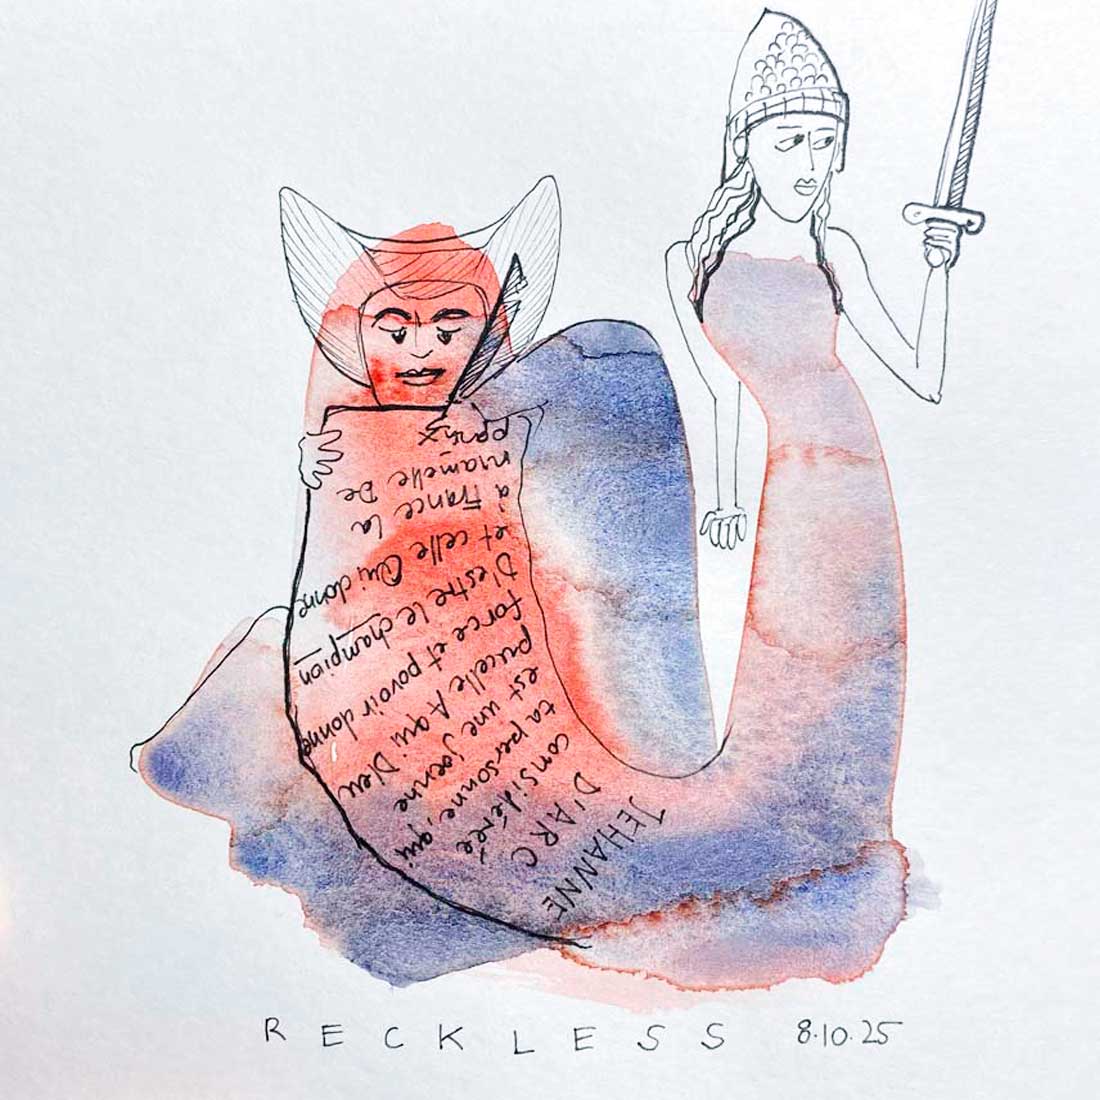 JEHANNE
D'ARC
considérée
ta personne, qui
est une joenne
pucelle A qui Dieu
force et povoir donne
D'estre le champion
et celle Qui donne
à France la
mamelle De
paix
RECKLESS 8.10.25